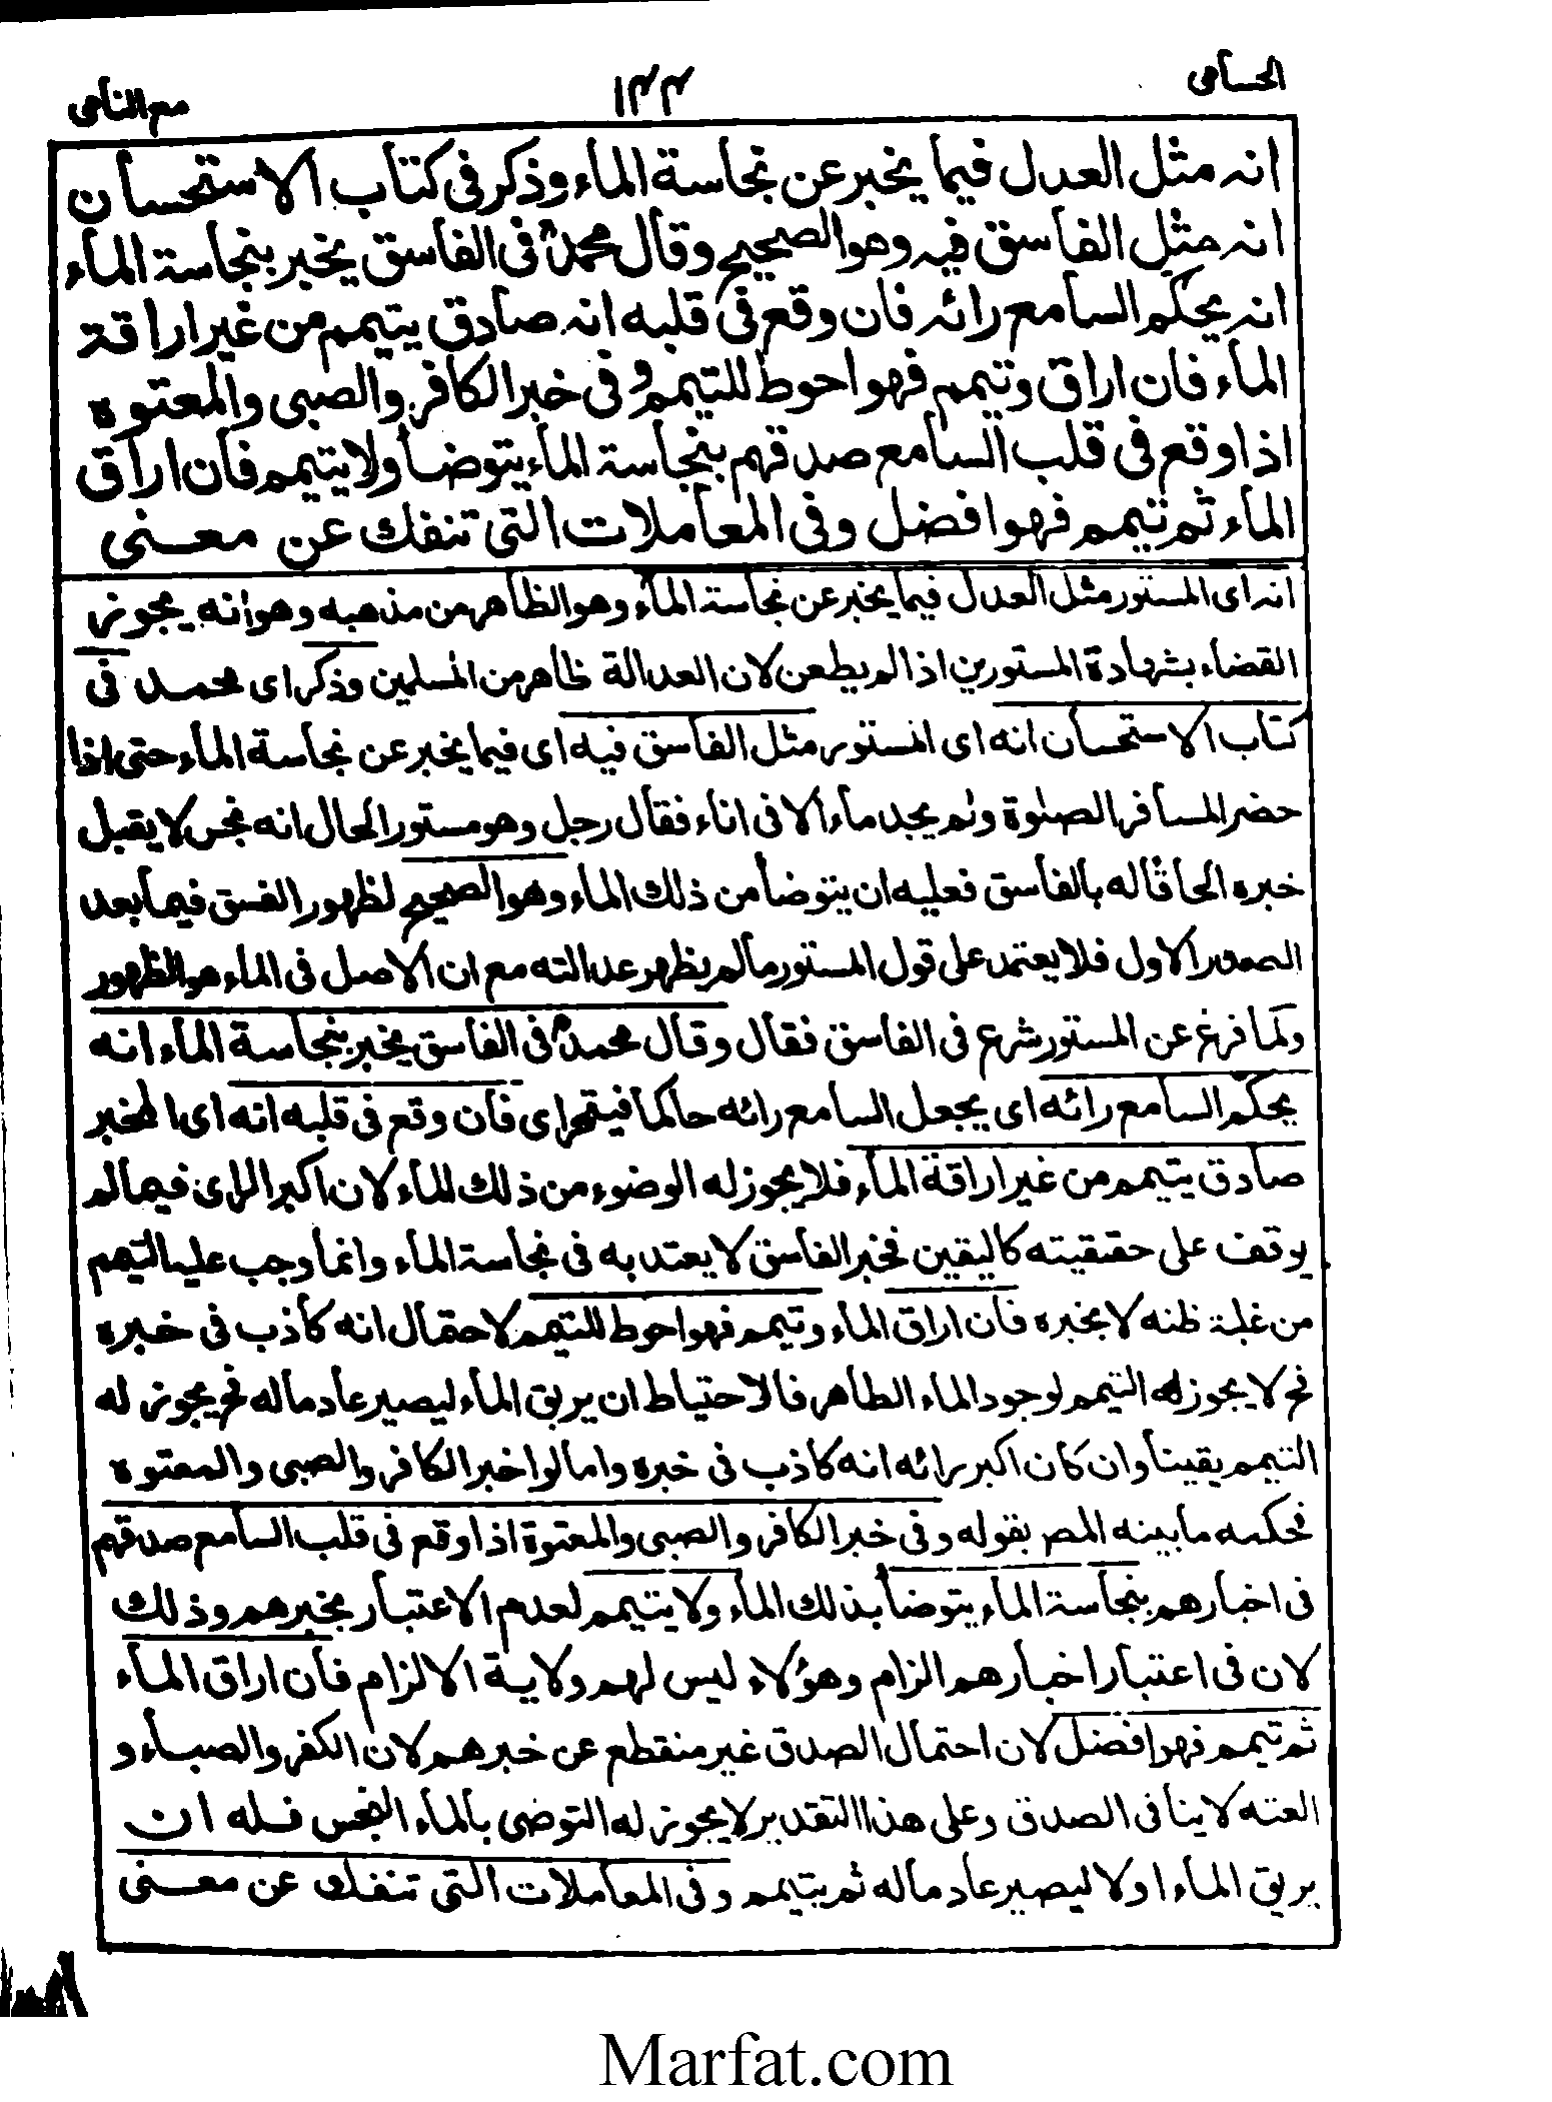 الحسامی
۱۴۴
مع النامی
انہ مثل العدل فیما یخبر عن نجاسة الماء وذکر فی کتاب الاستحسان
انہ مثل الفاسق فیہ وھو الصحیح وقال محمدؒ فی الفاسق یخبر بنجاسة الماء
انہ یحکم السامع رائہ فان وقع فی قلبہ انہ صادق یتیمم من غیر اراقة
الماء فان اراق وتیمم فھو احوط للتیمم وفی خبر الکافر والصبی والمعتوہ
اذا وقع فی قلب السامع صدقھم بنجاسة الماء یتوضأ ولا یتیمم فان اراق
الماء ثم تیمم فھو افضل وفی المعاملات التی تنفک عن معنی
انہ ای المستور مثل العدل فیما یخبر عن نجاسة الماء وھو الظاھر من مذھبہ وھو انہ یجوز
القضاء بشھادة المستورین اذا لم یطعن لان العدالة ظاھر من المسلمین وذکر ای محمد فی
کتاب الاستحسان انہ ای المستور مثل الفاسق فیہ ای فیما یخبر عن نجاسة الماء حتی اذا
حضر المسافر الصلوة ولم یجد ماء الا فی اناء فقال رجل وھو مستور الحال انہ نجس لا یقبل
خبرہ الحاقا لہ بالفاسق فعلیہ ان یتوضأ من ذلک الماء وھو الصحیح لظھور الفسق فیما بعد
الصدر الاول فلا یعتمد علی قول المستور ما لم یظھر عدالتہ مع ان الاصل فی الماء ھو الطھور
ولما فرغ عن المستور شرع فی الفاسق فقال وقال محمدؒ فی الفاسق یخبر بنجاسة الماء انہ
یحکم السامع رائہ ای یجعل السامع رائہ حاکما فیتحرای فان وقع فی قلبہ انہ ای المخبر
صادق یتیمم من غیر اراقة الماء فلا یجوز لہ الوضوء من ذلک الماء لان اکبر الرای فیما لم
یوقف علی حقیقیتہ کالیقین فخبر الفاسق لا یعتد بہ فی نجاسة الماء وانما وجب علیہ التیمم
من غلبة ظنہ لا بخبرہ فان اراق الماء وتیمم فھو احوط للتیمم لاحتمال انہ کاذب فی خبرہ
فح لا یجوز لہ التیمم لوجود الماء الطاھر فالاحتیاط ان یریق الماء لیصیر عادما لہ فح یجوز لہ
التیمم یقینا وان کان اکبر رائہ انہ کاذب فی خبرہ واما لو اخبر الکافر والصبی والمعتوہ
فحکمہ ما بینہ المصر بقولہ وفی خبر الکافر والصبی والمعتوة اذا وقع فی قلب السامع صدقھم
فی اخبارھم بنجاسة الماء یتوضأ بذلک الماء ولا یتیمم لعدم الاعتبار بخبرھم وذلک
لان فی اعتبار اخبارھم الزام وھؤلاء لیس لھم ولایة الالزام فان اراق الماء
ثم تیمم فھو افضل لان احتمال الصدق غیر منقطع عن خبرھم لان الکفر والصباء و
العتہ لا ینافی الصدق وعلی ھذا التقدیر لا یجوز لہ التوضی بالماء النجس فلہ ان
یریق الماء اولا لیصیر عادما لہ ثم یتیمم وفی المعاملات التی تنفک عن معنی
Marfat.com